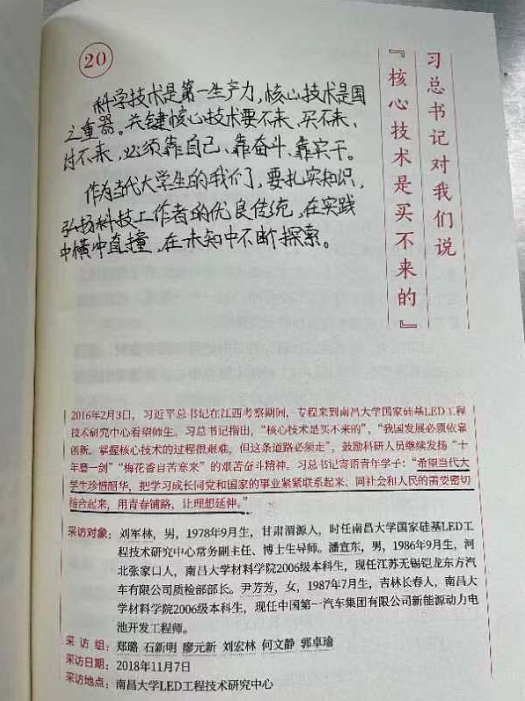 20
习总书记对我们说
『核心技术是买不来的』
科学技术是第一生产力,核心技术是国
之重器。关键核心技术要不来、买不来、
讨不来,必须靠自己、靠奋斗、靠实干。
作为当代大学生的我们,要扎实知识,
弘扬科技工作者的优良传统,在实践
中横冲直撞,在未知中不断探索。
2016年2月3日,习近平总书记在江西考察期间,专程来到南昌大学国家硅基LED工程
技术研究中心看望师生。习总书记指出,“核心技术是买不来的”,“我国发展必须依靠
创新,掌握核心技术的过程很艰难,但这条道路必须走”,鼓励科研人员继续发扬“十
年磨一剑”“梅花香自苦寒来”的艰苦奋斗精神。习总书记寄语青年学子:“希望当代大
学生珍惜韶华,把学习成长同党和国家的事业紧紧联系起来、同社会和人民的需要密切
结合起来,用青春铺路,让理想延伸。”
采访对象:刘军林,男,1978年9月生,甘肃渭源人,时任南昌大学国家硅基LED工
程技术研究中心常务副主任、博士生导师。潘宣东,男,1986年9月生,河
北张家口人,南昌大学材料学院2006级本科生,现任江苏无锡铠龙东方汽
车有限公司质检部部长。尹芳芳,女,1987年7月生,吉林长春人,南昌大
学材料学院2006级本科生,现任中国第一汽车集团有限公司新能源动力电
池开发工程师。
采 访 组:郑璐 石新明 廖元新 刘宏林 何文静 郭卓瑜
采访日期:2018年11月7日
采访地点:南昌大学LED工程技术研究中心